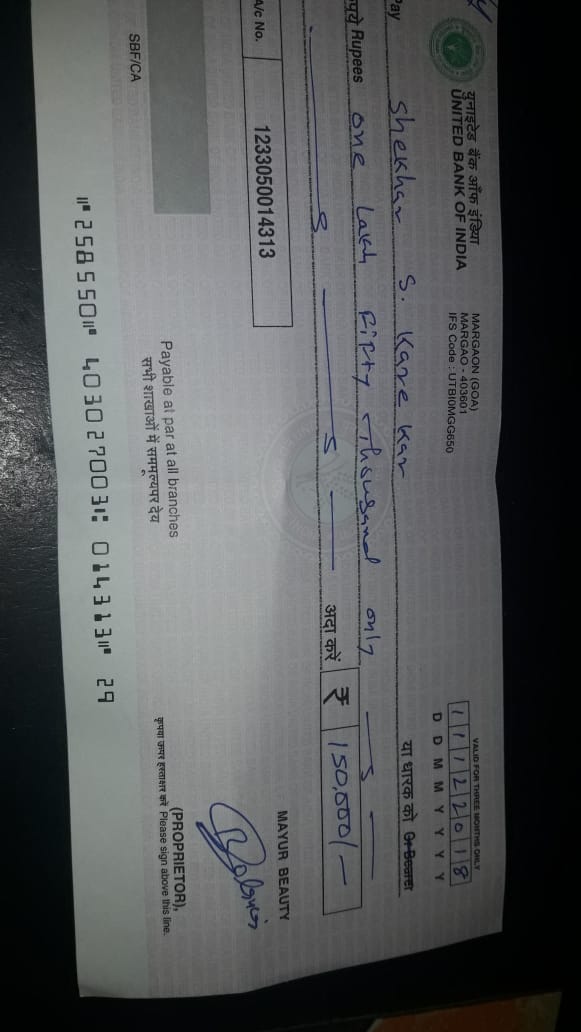 युनाइटेड बैंक ऑफ इंडिया
UNITED BANK OF INDIA
MARGAON (GOA)
MARGAO - 403601
IFS Code : UTBI0MGG650
VALID FOR THREE MONTHS ONLY
11122018
D D M M Y Y Y Y
Pay Shekhar S. Karekar या धारक को Or Bearer
रुपये Rupees one lakh Fifty Thousand only
अदा करें ₹ 150,000/-
A/c No. 1233050014313
MAYUR BEAUTY
SBF/CA
Payable at par at all branches
सभी शाखाओं में सममूल्यपर देय
(PROPRIETOR),
कृपया ऊपर हस्ताक्षर करें Please sign above this line.
⑈258550⑈ 403027003⑆ 014313⑈ 29